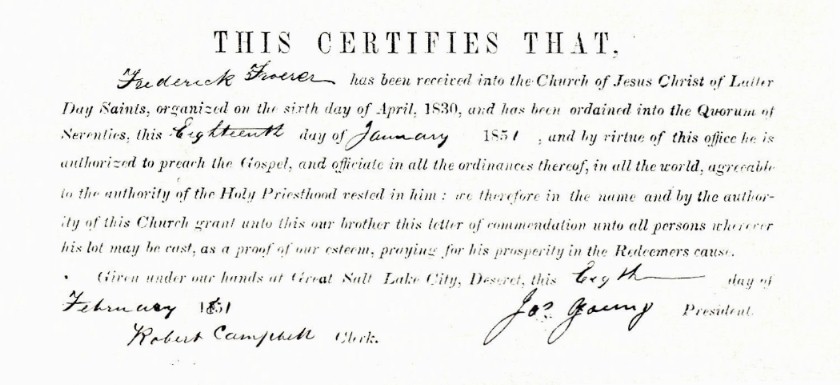 THIS CERTIFIES THAT,
Frederick Froerer has been received into the Church of Jesus Christ of Latter
Day Saints, organized on the sixth day of April, 1830, and has been ordained into the Quorum of
Seventies, this Eighteenth day of January 1851, and by virtue of this office he is
authorized to preach the Gospel, and officiate in all the ordinances thereof, in all the world, agreeable
to the authority of the Holy Priesthood vested in him: we therefore in the name and by the author-
ity of this Church grant unto this our brother this letter of commendation unto all persons wherever
his lot may be cast, as a proof of our esteem, praying for his prosperity in the Redeemers cause.
Given under our hands at Great Salt Lake City, Deseret, this Eigth day of
February 1851 Jos Young President.
Robert Campbell Clerk.